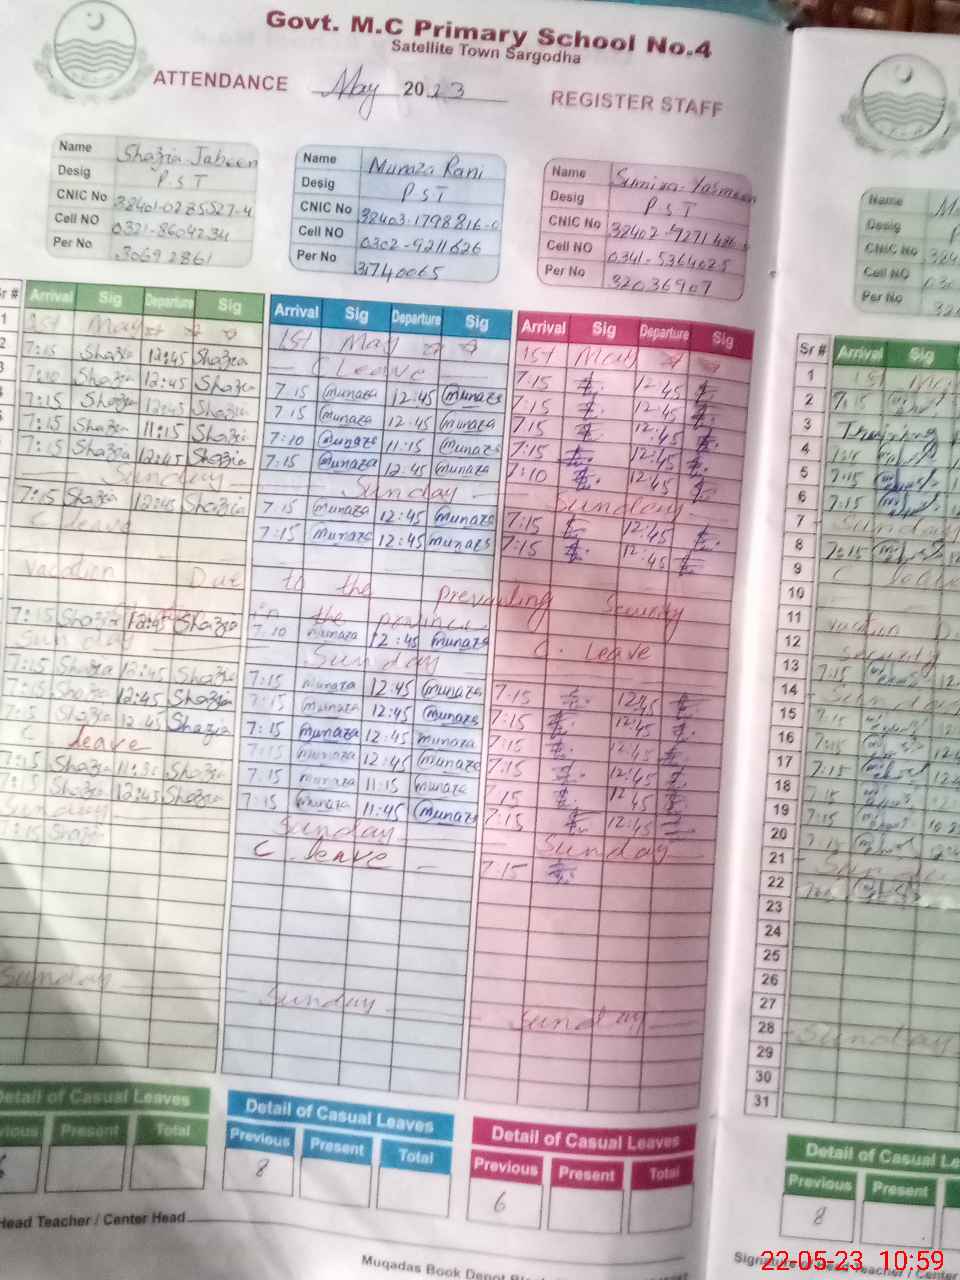 Govt. M.C Primary School No.4
Satellite Town Sargodha
ATTENDANCE May 2023 REGISTER STAFF
Name Shazia Jabeen
Desig P.S.T
CNIC No
Cell NO 0321-8604234
Per No 30692861
Name Munaza Rani
Desig P.S.T
CNIC No
Cell NO 0302-9211626
Per No 31740065
Name Sumira Yasmeen
Desig P.S.T
CNIC No
Cell NO 0341-5364025
Per No 32036907
Name
Desig
CNIC No
Cell NO
Per No
Sr # Arrival Sig Departure Sig
1 1st May
2 7:15 Shazia 12:45 Shazia
3 7:10 Shazia 12:45 Shazia
7:15 Shazia 12:45 Shazia
7:15 Shazia 11:15 Shazia
7:15 Shazia 12:45 Shazia
Sunday
7:15 Shazia 12:45 Shazia
C leave
Vacation Due to the Prevailing Security
in the province
7:15 Shazia 12:45 Shazia
Sunday
7:15 Shazia 12:45 Shazia
7:15 Shazia 12:45 Shazia
7:15 Shazia 12:45 Shazia
C leave
7:15 Shazia Shazia
7:15 Shazia 12:45 Shazia
Sunday
7:15 Shazia
Sunday
Arrival Sig Departure Sig
1st May
C Leave
7:15 munaza 12:45 munaza
7:15 munaza 12:45 munaza
7:10 munaza 11:15 munaza
7:15 munaza 12:45 munaza
Sunday
7:15 munaza 12:45 munaza
7:15 munaza 12:45 munaza
7:10 munaza 12:45 munaza
Sunday
7:15 munaza 12:45 munaza
7:15 munaza 12:45 munaza
7:15 munaza 12:45 munaza
7:15 munaza 12:45 munaza
7:15 munaza 11:15 munaza
7:15 munaza 11:45 munaza
Sunday
C leave
Sunday
Arrival Sig Departure Sig
1st May
7:15 12:45
7:15 12:45
7:15 12:45
7:15 12:45
7:10 12:45
Sunday
7:15 12:45
7:15 12:45
C. Leave
7:15 12:45
7:15 12:45
7:15 12:45
7:15 12:45
7:15 12:45
7:15 12:45
Sunday
7:15
Sunday
Sr # Arrival Sig
1 1st
2 7:15
3 Training
4
5 7:15
6 7:15
7 Sunday
8 7:15
9 C leave
10
11 vacation
12 security
13 7:15
14 Sunday
15 7:15
16 7:15
17 7:15
18 7:15
19 7:15
20 7:15
21 Sunday
22
23
24
25
26
27
28 Sunday
29
30
31
Detail of Casual Leaves
Previous Present Total
Detail of Casual Leaves
Previous Present Total
8
Detail of Casual Leaves
Previous Present Total
6
Detail of Casual Le
Previous Present
8
Head Teacher / Center Head
Muqadas Book Depot
Signature of Head Teacher / Center
22-05-23 10:59